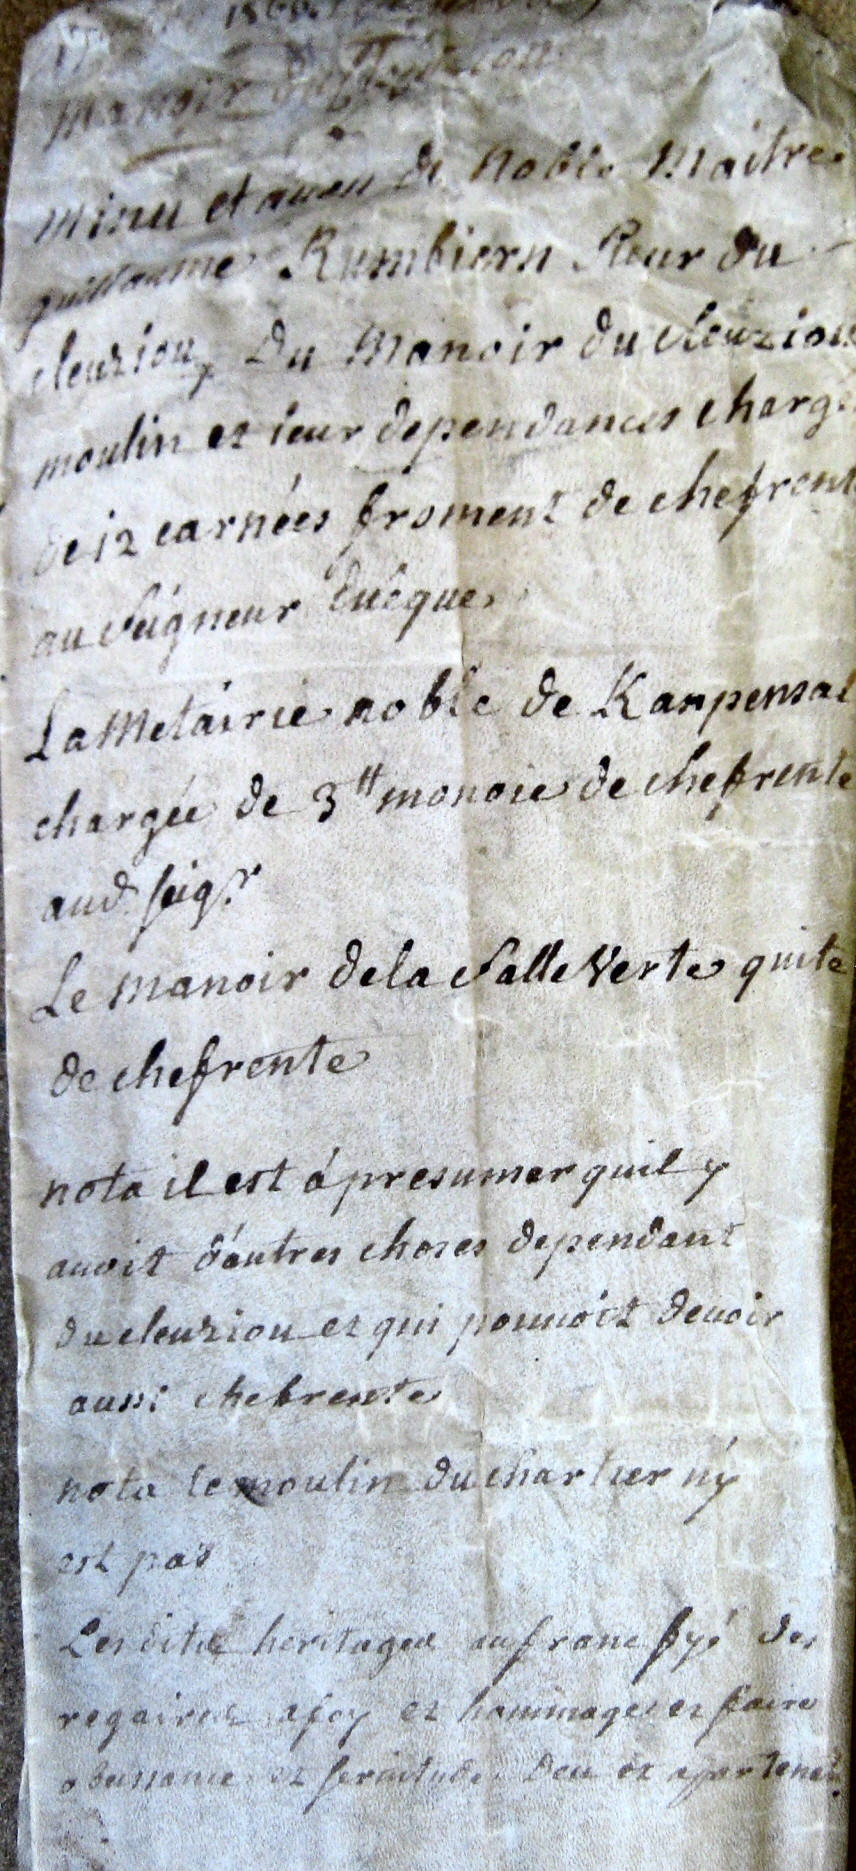 manoir du
minu et aueu de Noble Maitre
guillaume Rumbiern Sieur du
cleuziou, Du Manoir du cleuziou
moulin et ieur dependances charge
de 12 carnées froment de chefrent
au Seigneur Euêque
La Metairie noble de Kanpensal
chargée de 3tt monoie de chefrente
aud. seigr
Le manoir dela Salle Verte quite
de chefrente
nota il est á presumer quil y
auoit d'autres choses dependant
du cleuziou et qui pouuoit deuoir
aussi chefrente
nota le moulin du chartier n'y
est pas
Les dits heritages au franc fyé des
regaires a foy et hommages et faire
obeissance et seruitude deu et apartenet